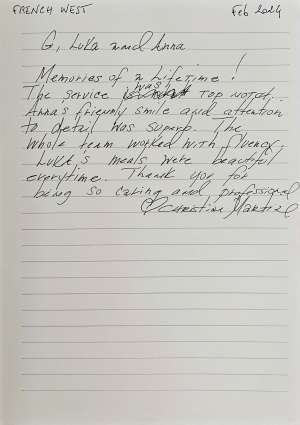 FRENCH WEST
Feb 2024
G, Luka and Anna
Memories of a Lifetime!
The service was top notch,
Anna's friendly smile and attention
to detail was superb. The
whole team worked with fluency,
Luka's meals were beautiful
everytime. Thank you for
being so caring and professional
Christine